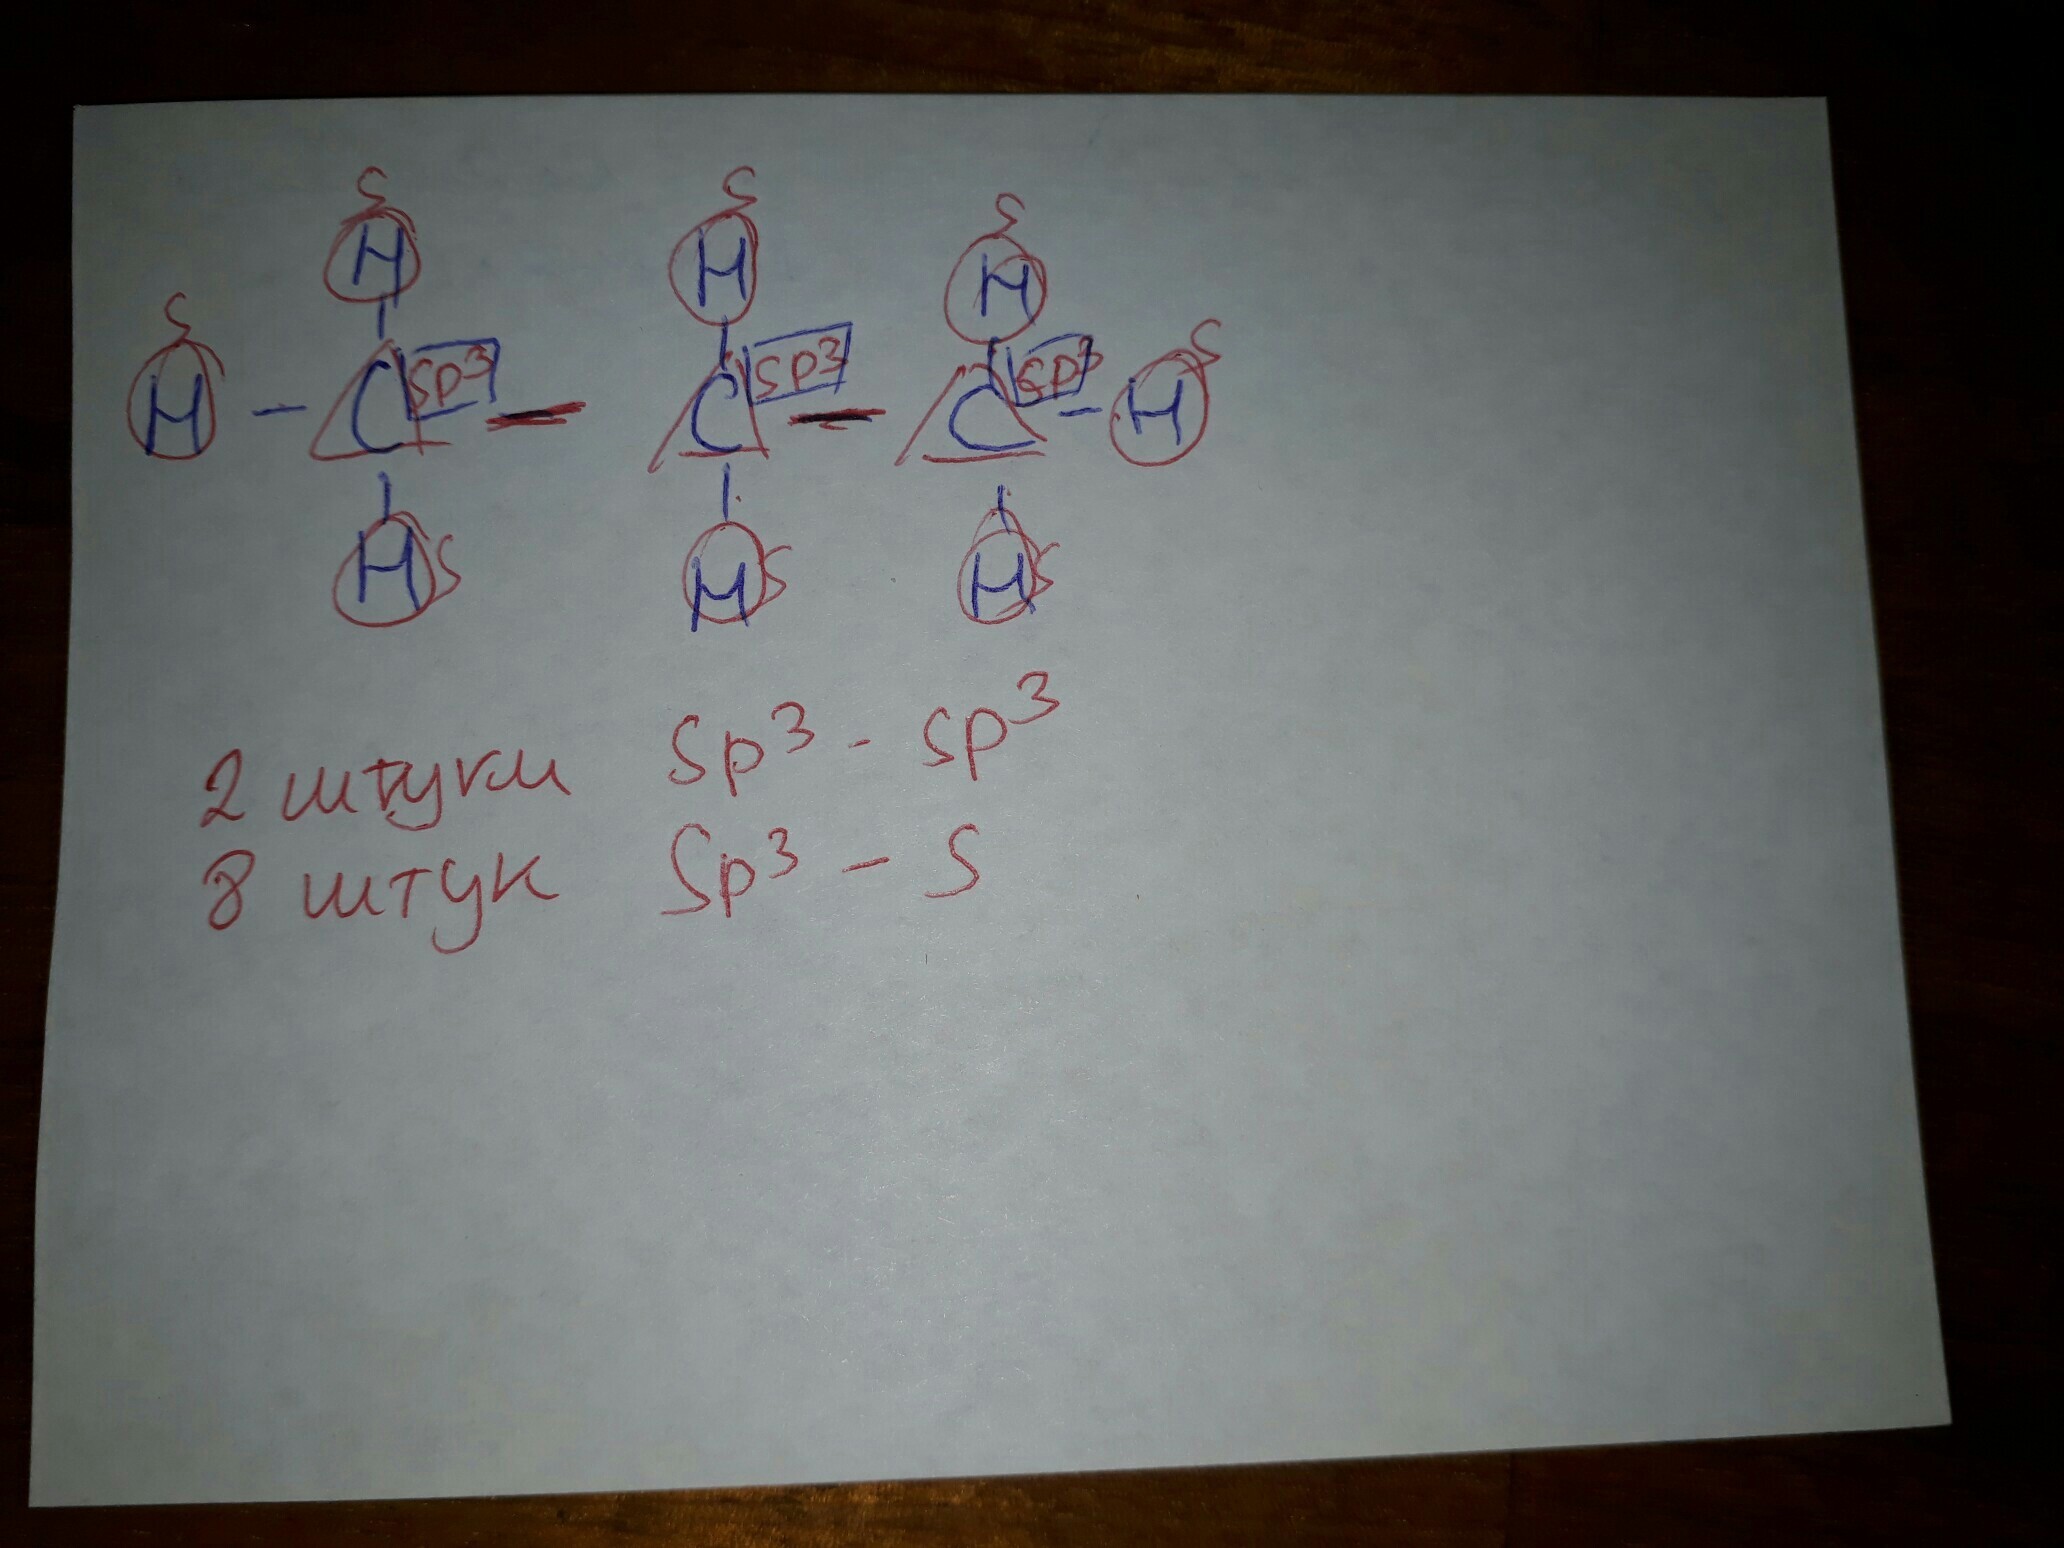 S S S
H H H S
S sp³ sp³ sp³
H - C - C - C - H
H S H S H S
2 штуки Sp³ - sp³
8 штук Sp³ - S